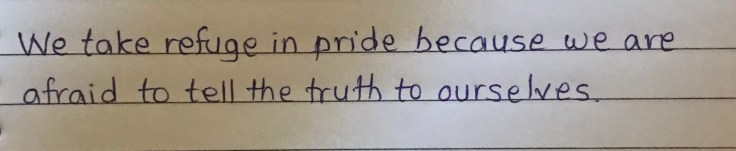 We take refuge in pride because we are
afraid to tell the truth to ourselves.